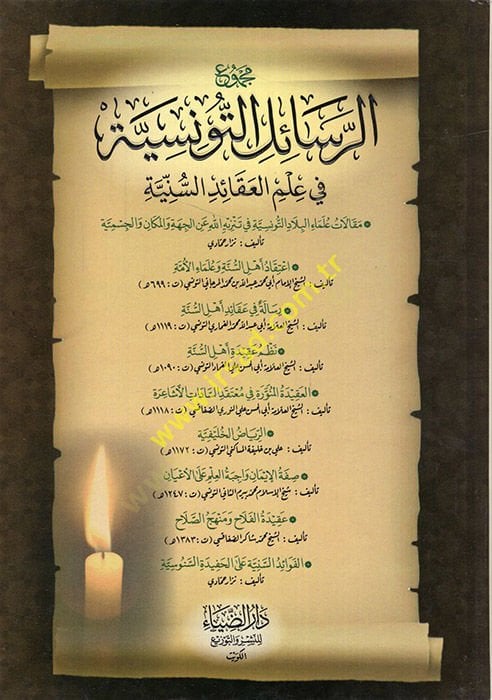 مجموع
الرسائل التونسية
في علم العقائد السنية
• مقالات علماء البلاد التونسية في تنزيه الله عن الجهة والمكان والجسمية
تأليف : نزار حمادي
• اعتقاد أهل السنة وعلماء الأمة
تأليف : الشيخ الإمام أبي محمد عبد الله بن محمد المرجاني التونسي (ت : ٦٩٩هـ)
• رسالة في عقائد أهل السنة
تأليف : الشيخ العلامة أبي عبد الله محمد الغماري التونسي (ت : ١١١٩هـ)
• نظم عقيدة أهل السنة
تأليف : الشيخ العلامة أبي الحسن التونسي (ت : ١٠٩٠هـ)
• العقيدة المنورة في معتقد السادات الأشاعرة
تأليف : الشيخ العلامة أبي الحسن علي النوري الصفاقسي (ت : ١١١٨هـ)
• الرياض الخليفية
تأليف : علي بن خليفة المساكني التونسي (ت : ١١٧٢هـ)
• صفة الإيمان واجبة العلم على الأعيان
تأليف : شيخ الإسلام محمد بيرم الثاني التونسي (ت : ١٢٤٧هـ)
• عقيدة الفلاح ومنهج الصلاح
تأليف : الشيخ محمد شاكر الصفاقسي (ت : ١٣٨٣هـ)
• الفوائد السنية على الحفيدة السنوسية
تأليف : نزار حمادي
دار الضياء
للنشر والتوزيع
الكويت